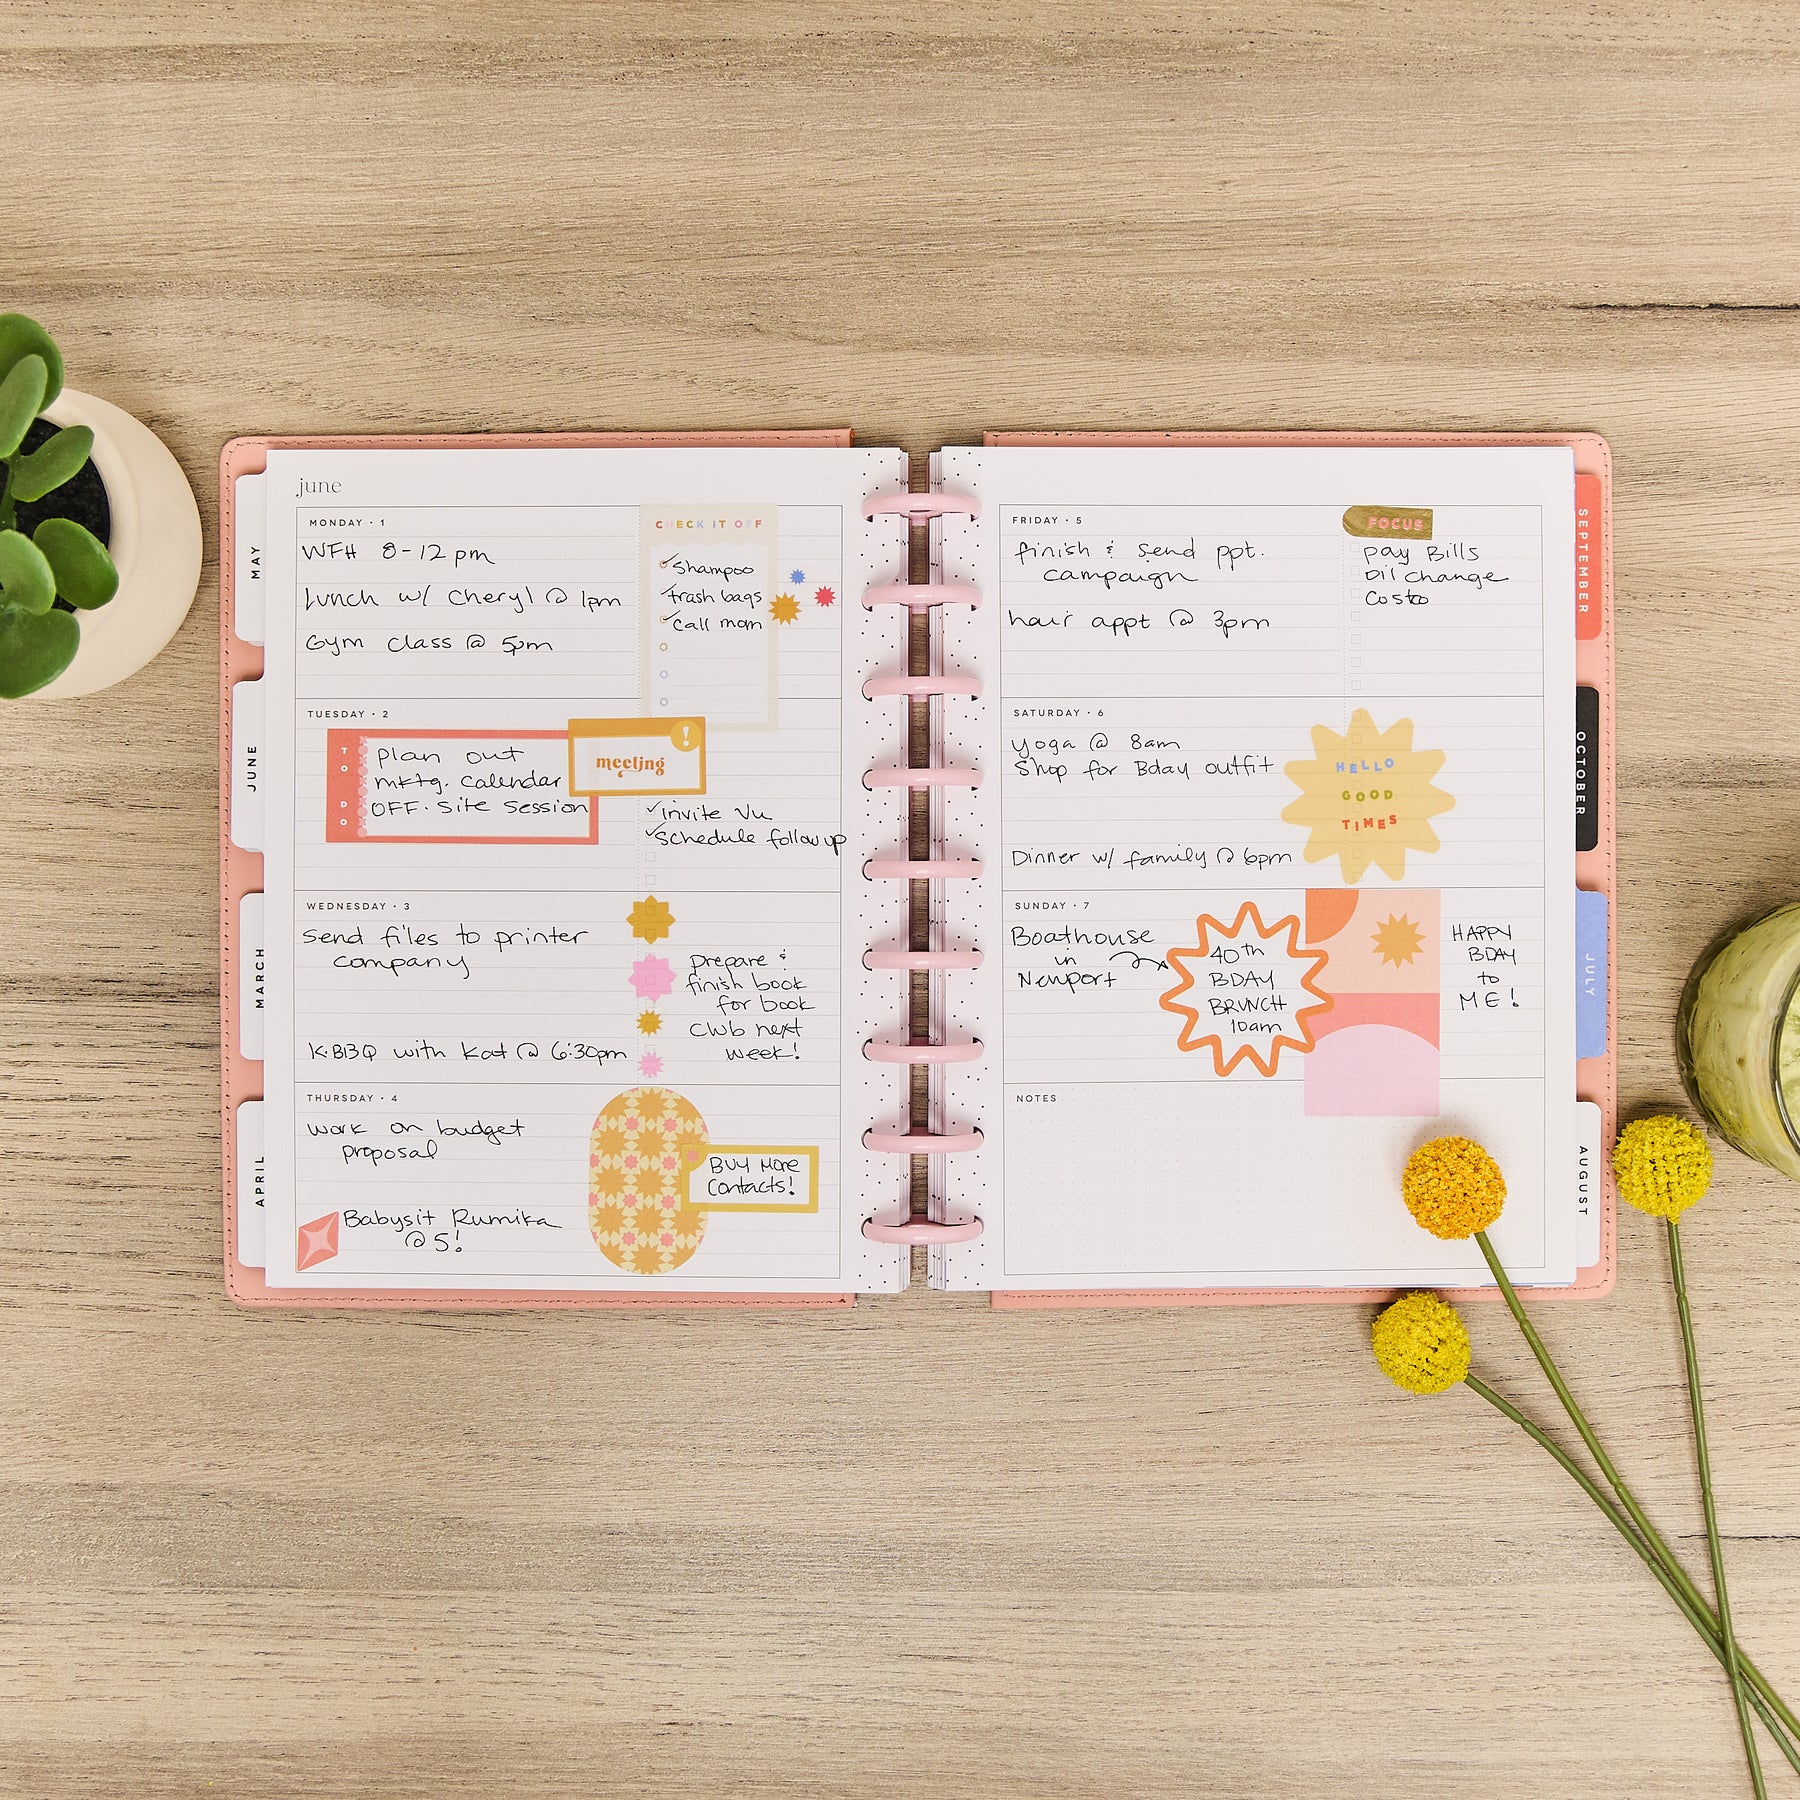 june
MONDAY · 1
WFH 8-12pm
Lunch w/ Cheryl @ 1pm
Gym class @ 5pm
CHECK IT OFF
Shampoo
trash bags
Call mom
TUESDAY · 2
TO DO
plan out
mktg. calendar
OFF. site session
meeting
!
invite Vu
Schedule follow up
WEDNESDAY · 3
send files to printer
company
KBBQ with Kat @ 6:30pm
Prepare &
finish book
for book
club next
week!
THURSDAY · 4
work on budget
proposal
Babysit Rumika
@ 5!
BUY MORE
Contacts!
FRIDAY · 5
finish & send ppt.
campaign
hair appt @ 3pm
FOCUS
pay Bills
oil change
Costco
SATURDAY · 6
yoga @ 8am
Shop for Bday outfit
Dinner w/ family @ 6pm
HELLO
GOOD
TIMES
SUNDAY · 7
Boathouse
in
Newport
40th
BDAY
BRUNCH
10am
HAPPY
BDAY
to
ME!
NOTES
MAY
JUNE
MARCH
APRIL
SEPTEMBER
OCTOBER
JULY
AUGUST